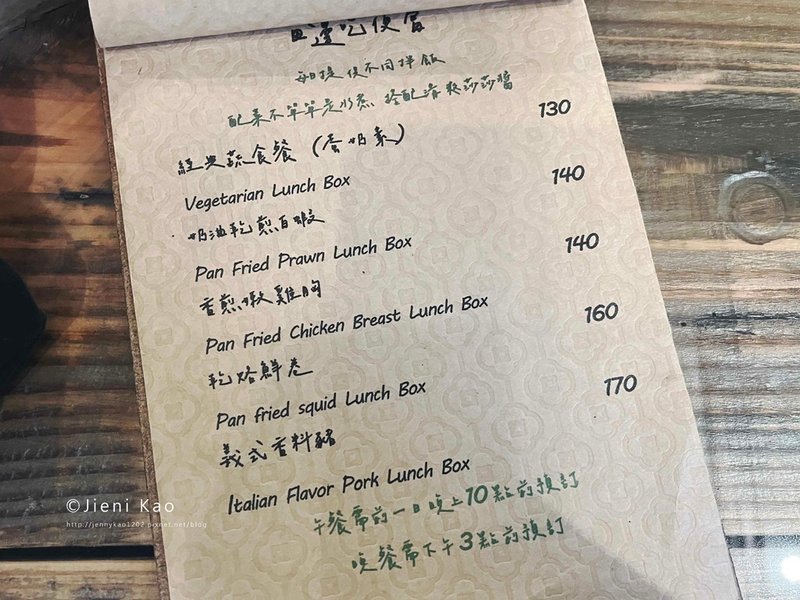 運吃便當
每日提供不同拌飯
配菜不單單是水煮 搭配清爽莎莎醬
經典蔬食餐 (蛋奶素) 130
Vegetarian Lunch Box
奶油乾煎白蝦 140
Pan Fried Prawn Lunch Box
香煎嫩雞胸 140
Pan Fried Chicken Breast Lunch Box
乾烙鮮卷 160
Pan fried squid Lunch Box
義式香料豬 170
Italian Flavor Pork Lunch Box
午餐需前一日晚上10點前預訂
晚餐需下午3點前預訂
©Jieni Kao
http://jennykao1202.pixnet.net/blog